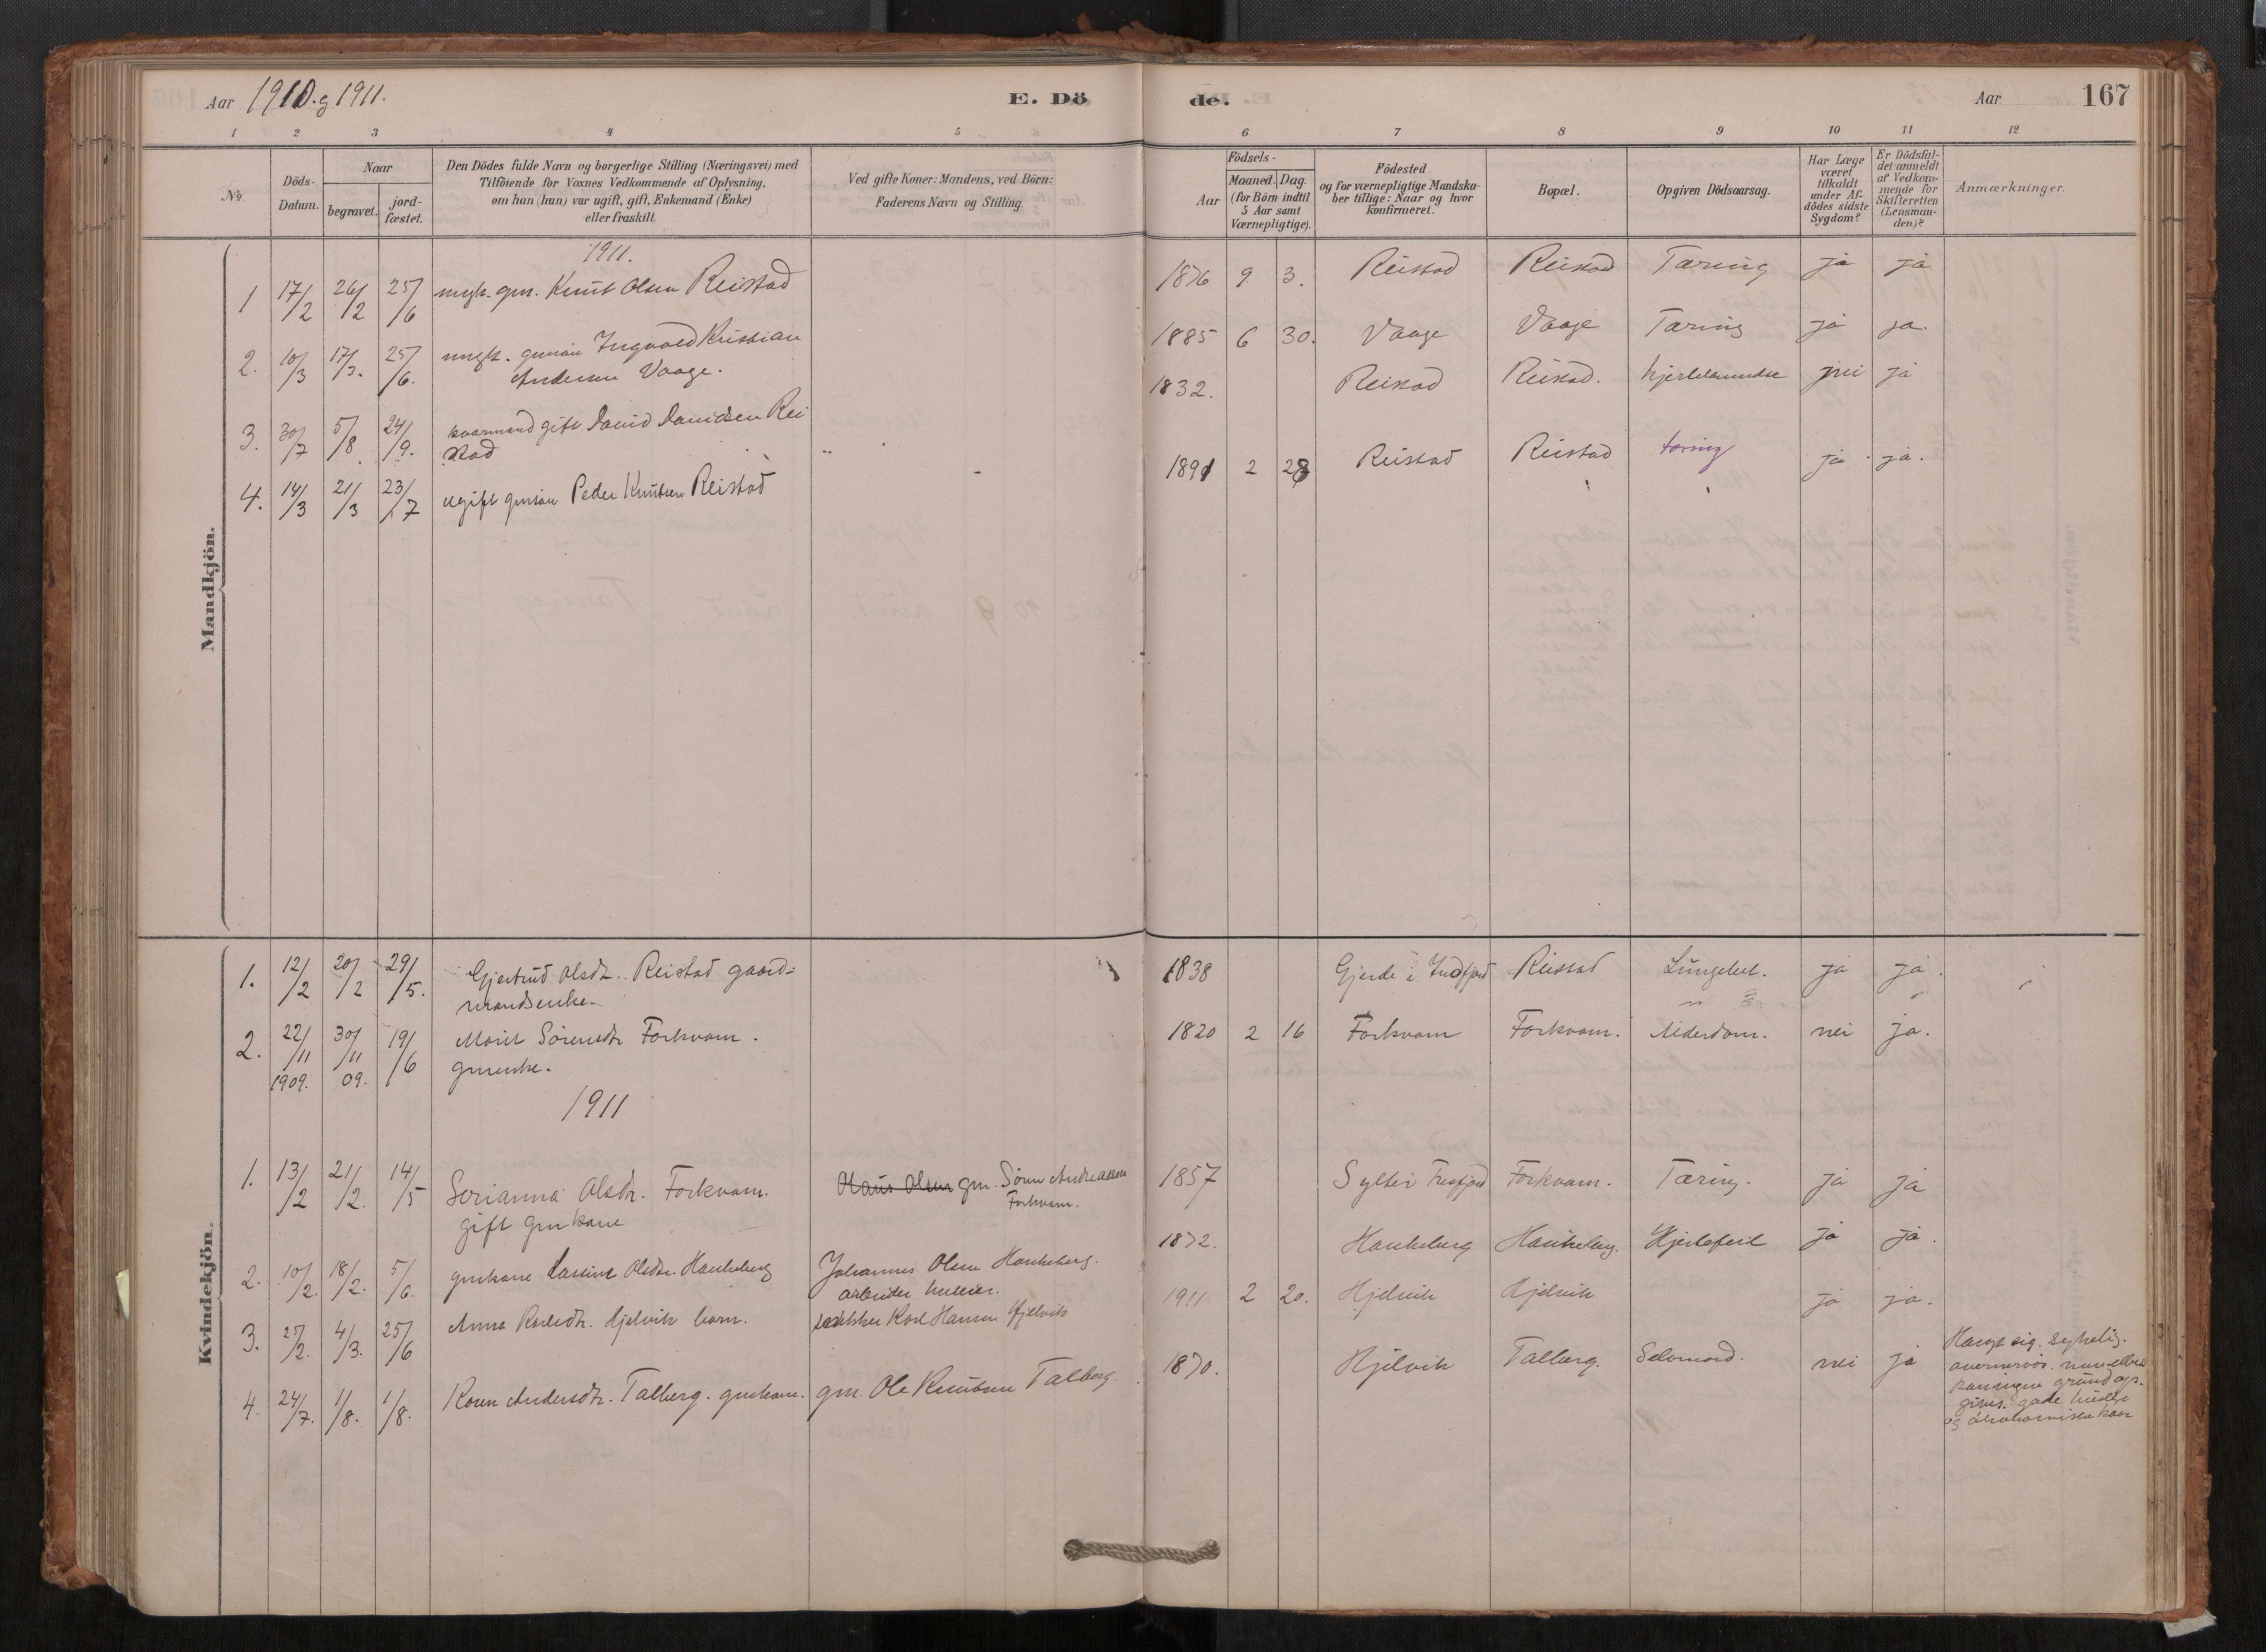 Aar 1910. g 1911.
E. Döde.
Aar
167
1 2 3 4 5 6 7 8 9 10 11 12
No
Döds-
Datum.
Naar
begravet.
jord-
fæstet.
Den Dödes fulde Navn og borgerlige Stilling (Næringsvei) med
Tilföiende for Voxnes Vedkommende af Oplysning,
om han (hun) var ugift, gift, Enkemand (Enke)
eller fraskilt.
Ved gifte Koner: Mandens, ved Börn:
Faderens Navn og Stilling.
Födsels-
Aar
Maaned. Dag.
(for Börn indtil
5 Aar samt
Værnepligtige).
Födested
og for værnepligtige Mandska-
ber tillige: Naar og hvor
Konfirmeret.
Bopæl.
Opgiven Dödsaarsag.
Har Læge
været
tilkaldt
under Af-
dödes sidste
Sygdom?
Er Dödsfal-
det anmeldt
af Vedkom-
mende for
Skifteretten
(Lensman-
den)?
Anmærkninger.
Mandkjön.
1911.
1 17/2 26/2 25/6 ungk. gm. Knut Olsen Reistad 1876 9 3. Reistad Reistad Tæring ja ja
2. 10/3 17/3. 25/6. ungk. gmsön Ingvald Kristian 1885 6 30. Vaage Vaage Tæring ja ja.
Andersen Vaage.
3. 30/7 5/8 24/9. kaarmand gift David Davidsen Rei 1832. Reistad Reistad. nei ja
stad
4. 14/3 21/3 23/7 ugift gmsön Peder Knutsen Reistad 1891 2 28 Reistad Reistad tæring ja ja.
Kvindekjön.
1. 12/2 20/2 29/5. Gjertrud Olsdt. Reistad gaard- 1838 Gjerde i Indfjord Reistad Lungebet. ja ja.
mandsenke.
2. 22/11 30/11 19/6 Marit Sörensdtr Forkvam. 1820 2 16 Forkvam Forkvam. Alderdom. nei ja.
1909. 09. gmenke.
1911
1. 13/2 21/2. 14/5 Serianna Olsdtr. Forkvam. Hans Olsen gm. Sören Andreassen 1857 Sylte i Tresfjord Forkvam. Tæring. ja ja
gift gmkone Forkvam.
2. 10/2. 18/2. 5/6. gmkone Lassine Olsdtr. Haukeberg Johannes Olsen Haukeberg. 1872. Haukeberg Haukeberg. Hjertefeil ja ja.
arbeider
3. 25/2. 4/3. 25/6 Anna Karlsdtr. Hjelvik barn. Karl Hansen Hjelvik 1911 2 20. Hjelvik Hjelvik ja ja.
4. 24/7. 1/8. 1/8. Karen Andersdtr. Talberg. gmkone. gm. Ole Knutsen Talberg. 1870. Hjelvik Talberg. Selvmord. nei ja
Hængt sig. sykelig.
grund op-
gives. gode
og ökonomiske kaar